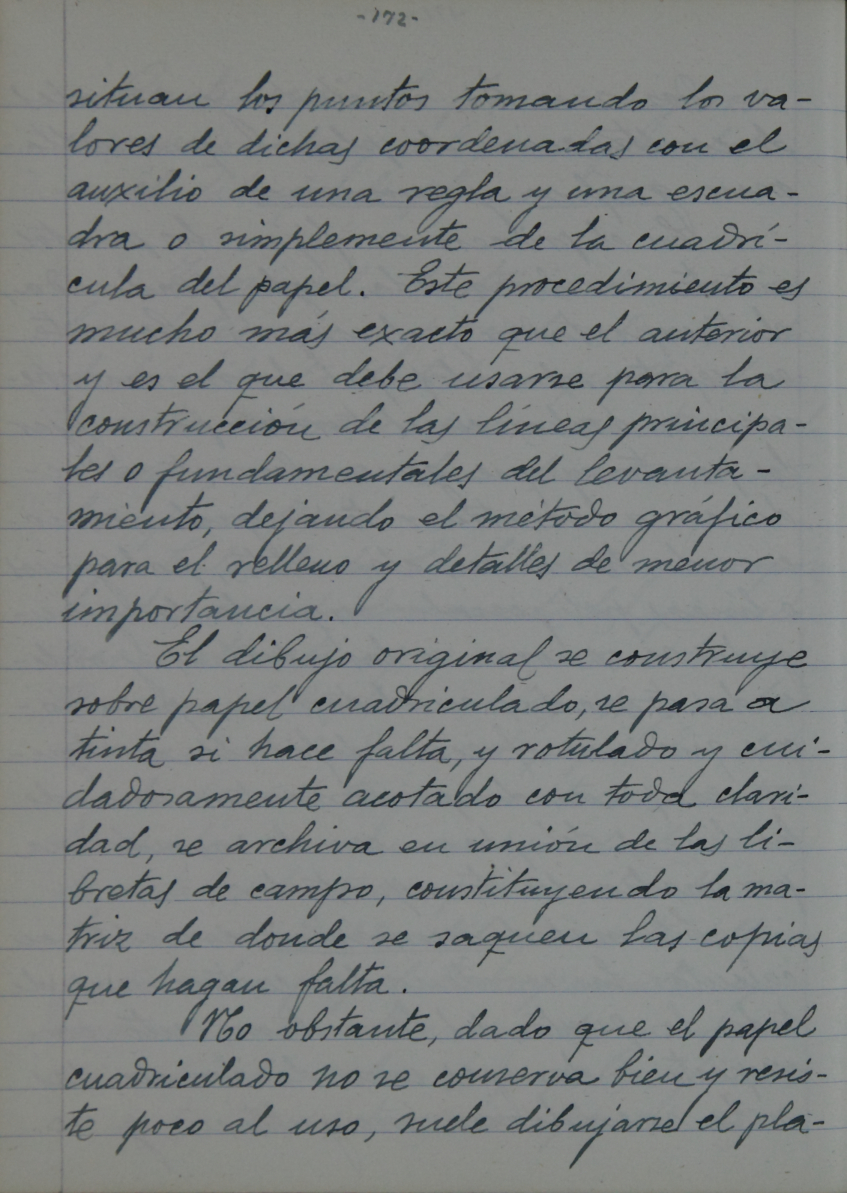 -172-
situan los puntos tomando los va-
lores de dichas coordenadas con el
auxilio de una regla y una escua-
dra o simplemente de la cuadrí-
cula del papel. Este procedimiento es
mucho más exacto que el anterior
y es el que debe usarse para la
construcción de las líneas principa-
les o fundamentales del levanta-
miento, dejando el método gráfico
para el relleno y detalles de menor
importancia.
El dibujo original se construye
sobre papel cuadriculado, se pasa a
tinta si hace falta, y rotulado y cui-
dadosamente acotado con toda clari-
dad, se archiva en unión de las li-
bretas de campo, constituyendo la ma-
triz de donde se saquen las copias
que hagan falta.
No obstante, dado que el papel
cuadriculado no se conserva bien y resis-
te poco al uso, suele dibujarse el pla-